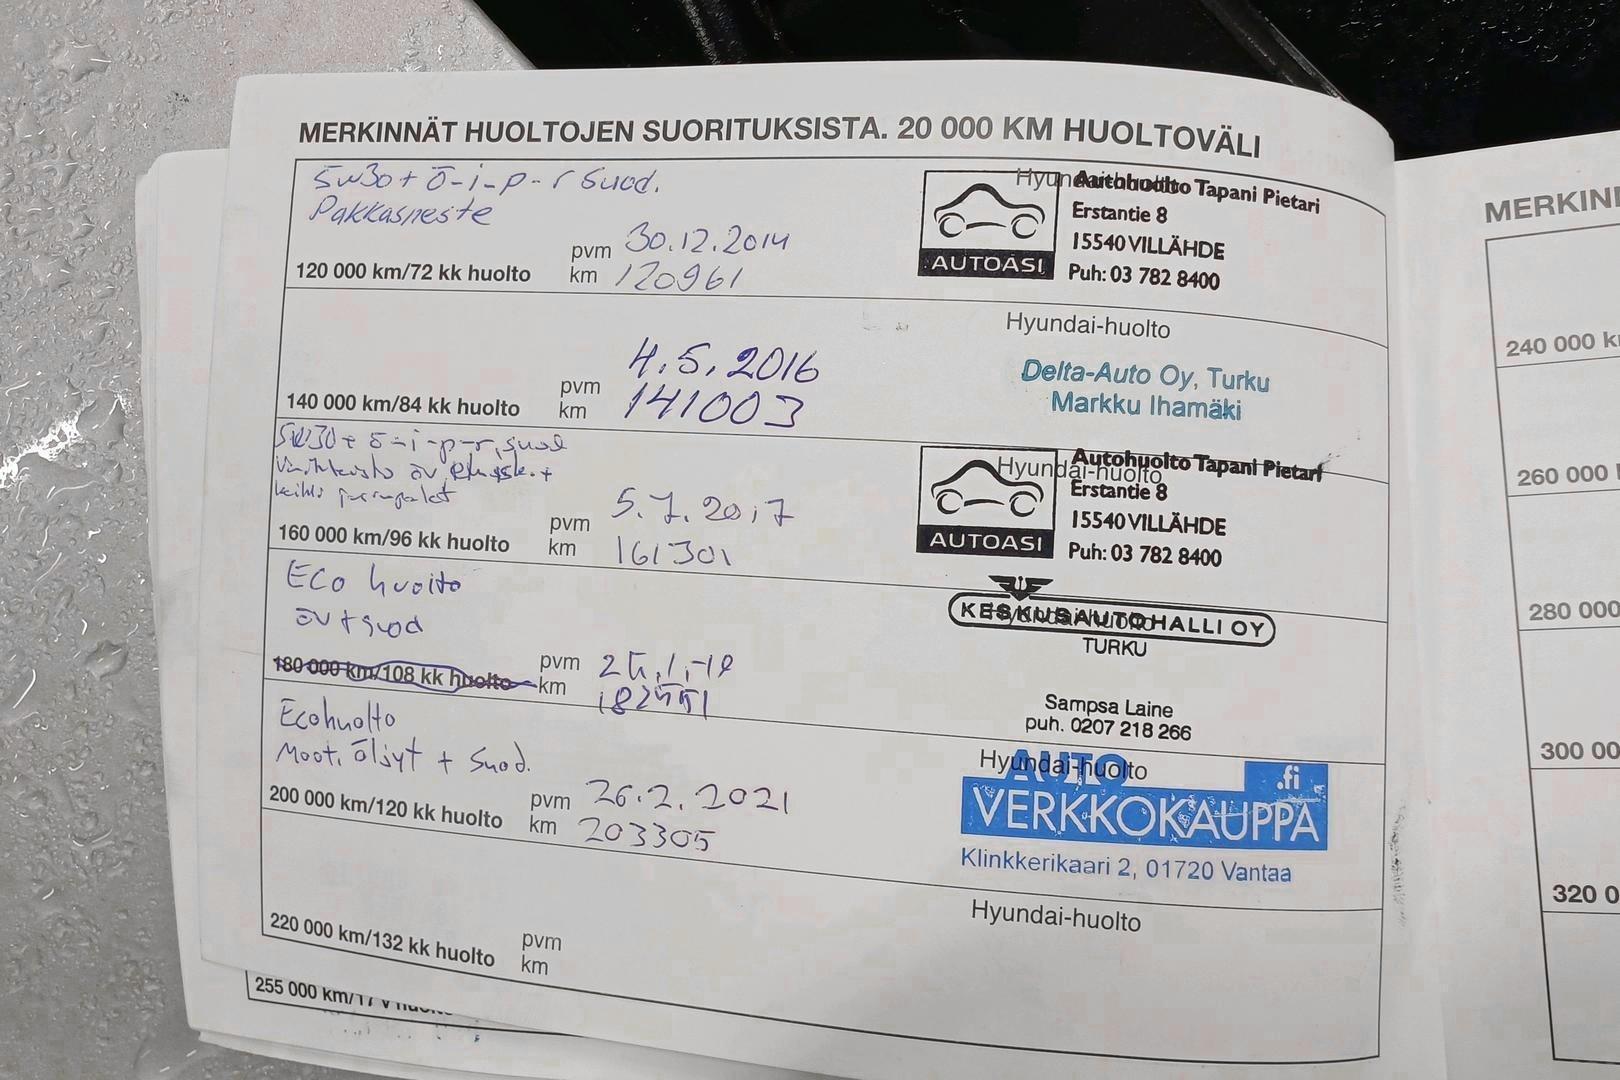 MERKINNÄT HUOLTOJEN SUORITUKSISTA. 20 000 KM HUOLTOVÄLI
5w30 + ö-i-p-r suod.
Pakkasneste
pvm 30.12.2014
120 000 km/72 kk huolto km 120961
Hyundai-huolto
Autohuolto Tapani Pietari
Erstantie 8
15540 VILLÄHDE
Puh: 03 782 8400
AUTOASI
pvm 4.5.2016
140 000 km/84 kk huolto km 141003
Hyundai-huolto
Delta-Auto Oy, Turku
Markku Ihamäki
5W30 + ö-i-p-r, suod
öv,
pvm 5.7.2017
160 000 km/96 kk huolto km 161301
Hyundai-huolto
Autohuolto Tapani Pietari
Erstantie 8
15540 VILLÄHDE
Puh: 03 782 8400
AUTOASI
Eco huolto
öv + suod
180 000 km/108 kk huolto pvm
km
Hyundai-huolto
KESKUSAUTOHALLI OY
TURKU
Sampsa Laine
puh. 0207 218 266
Ecohuolto
Moot. öljyt + suod.
pvm 26.2.2021
200 000 km/120 kk huolto km 203305
Hyundai-huolto
AUTO
VERKKOKAUPPA
.fi
Klinkkerikaari 2, 01720 Vantaa
pvm
220 000 km/132 kk huolto km
Hyundai-huolto
255 000 km/17 v
MERKIN
240 000 k
260 000
280 000
300 00
320 0